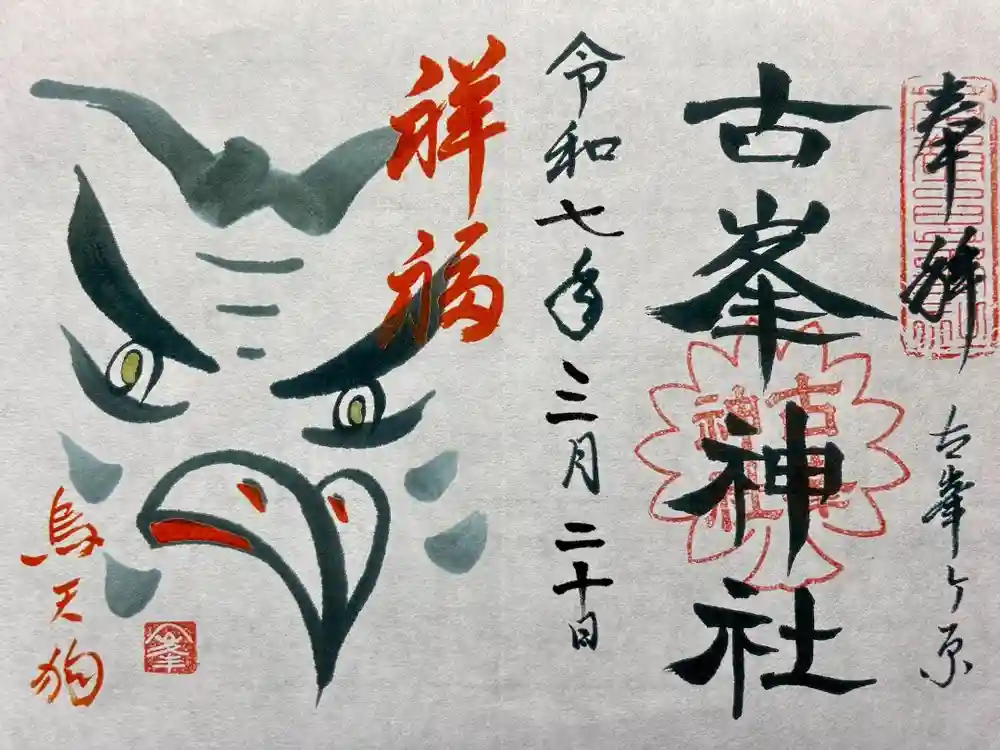 奉拝
古峯ヶ原
古峯神社
古峯神社
令和七年三月二十日
祥福
烏天狗
峯